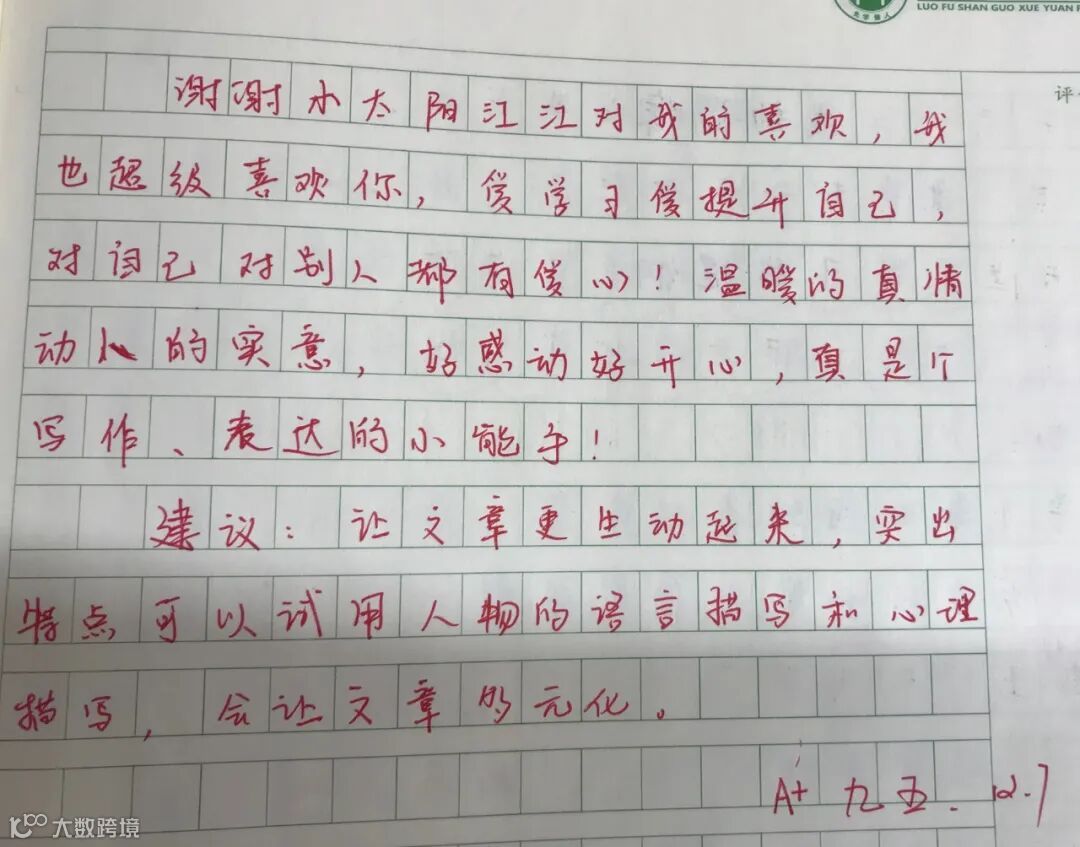 LUO FU SHAN GUO XUE YUAN
评
谢谢小太阳江江对我的喜欢，我
也超级喜欢你，爱学习爱提升自己，
对自己对别人都有爱心！温暖的真情
动人的实意，好感动好开心，真是个
写作、表达的小能手！
建议：让文章更生动起来，突出
特点可以试用人物的语言描写和心理
描写，会让文章多元化。
A+ 九五. 12.7
大数跨境